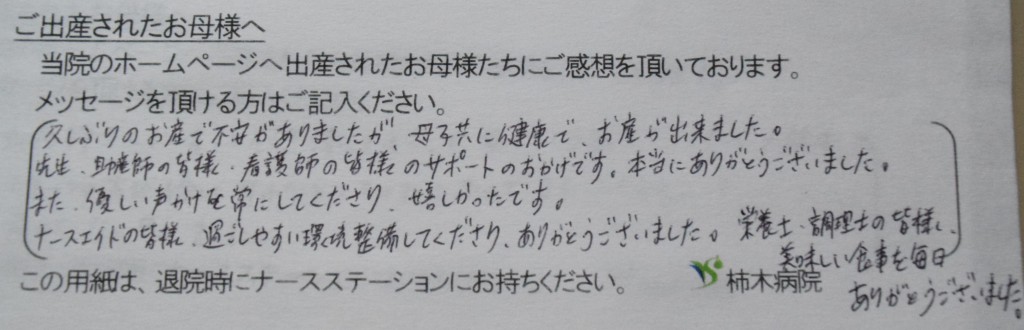 ご出産されたお母様へ
当院のホームページへ出産されたお母様たちにご感想を頂いております。
メッセージを頂ける方はご記入ください。
久しぶりのお産で不安がありましたが、母子共に健康で、お産が出来ました。
先生、助産師の皆様・看護師の皆様のサポートのおかげです。本当にありがとうございました。
また、優しい声かけを常にしてくださり、嬉しかったです。
ナースエイドの皆様、過ごしやすい環境整備してくださり、ありがとうございました。栄養士・調理士の皆様、
美味しい食事を毎日
ありがとうございました。
この用紙は、退院時にナースステーションにお持ちください。
柿木病院